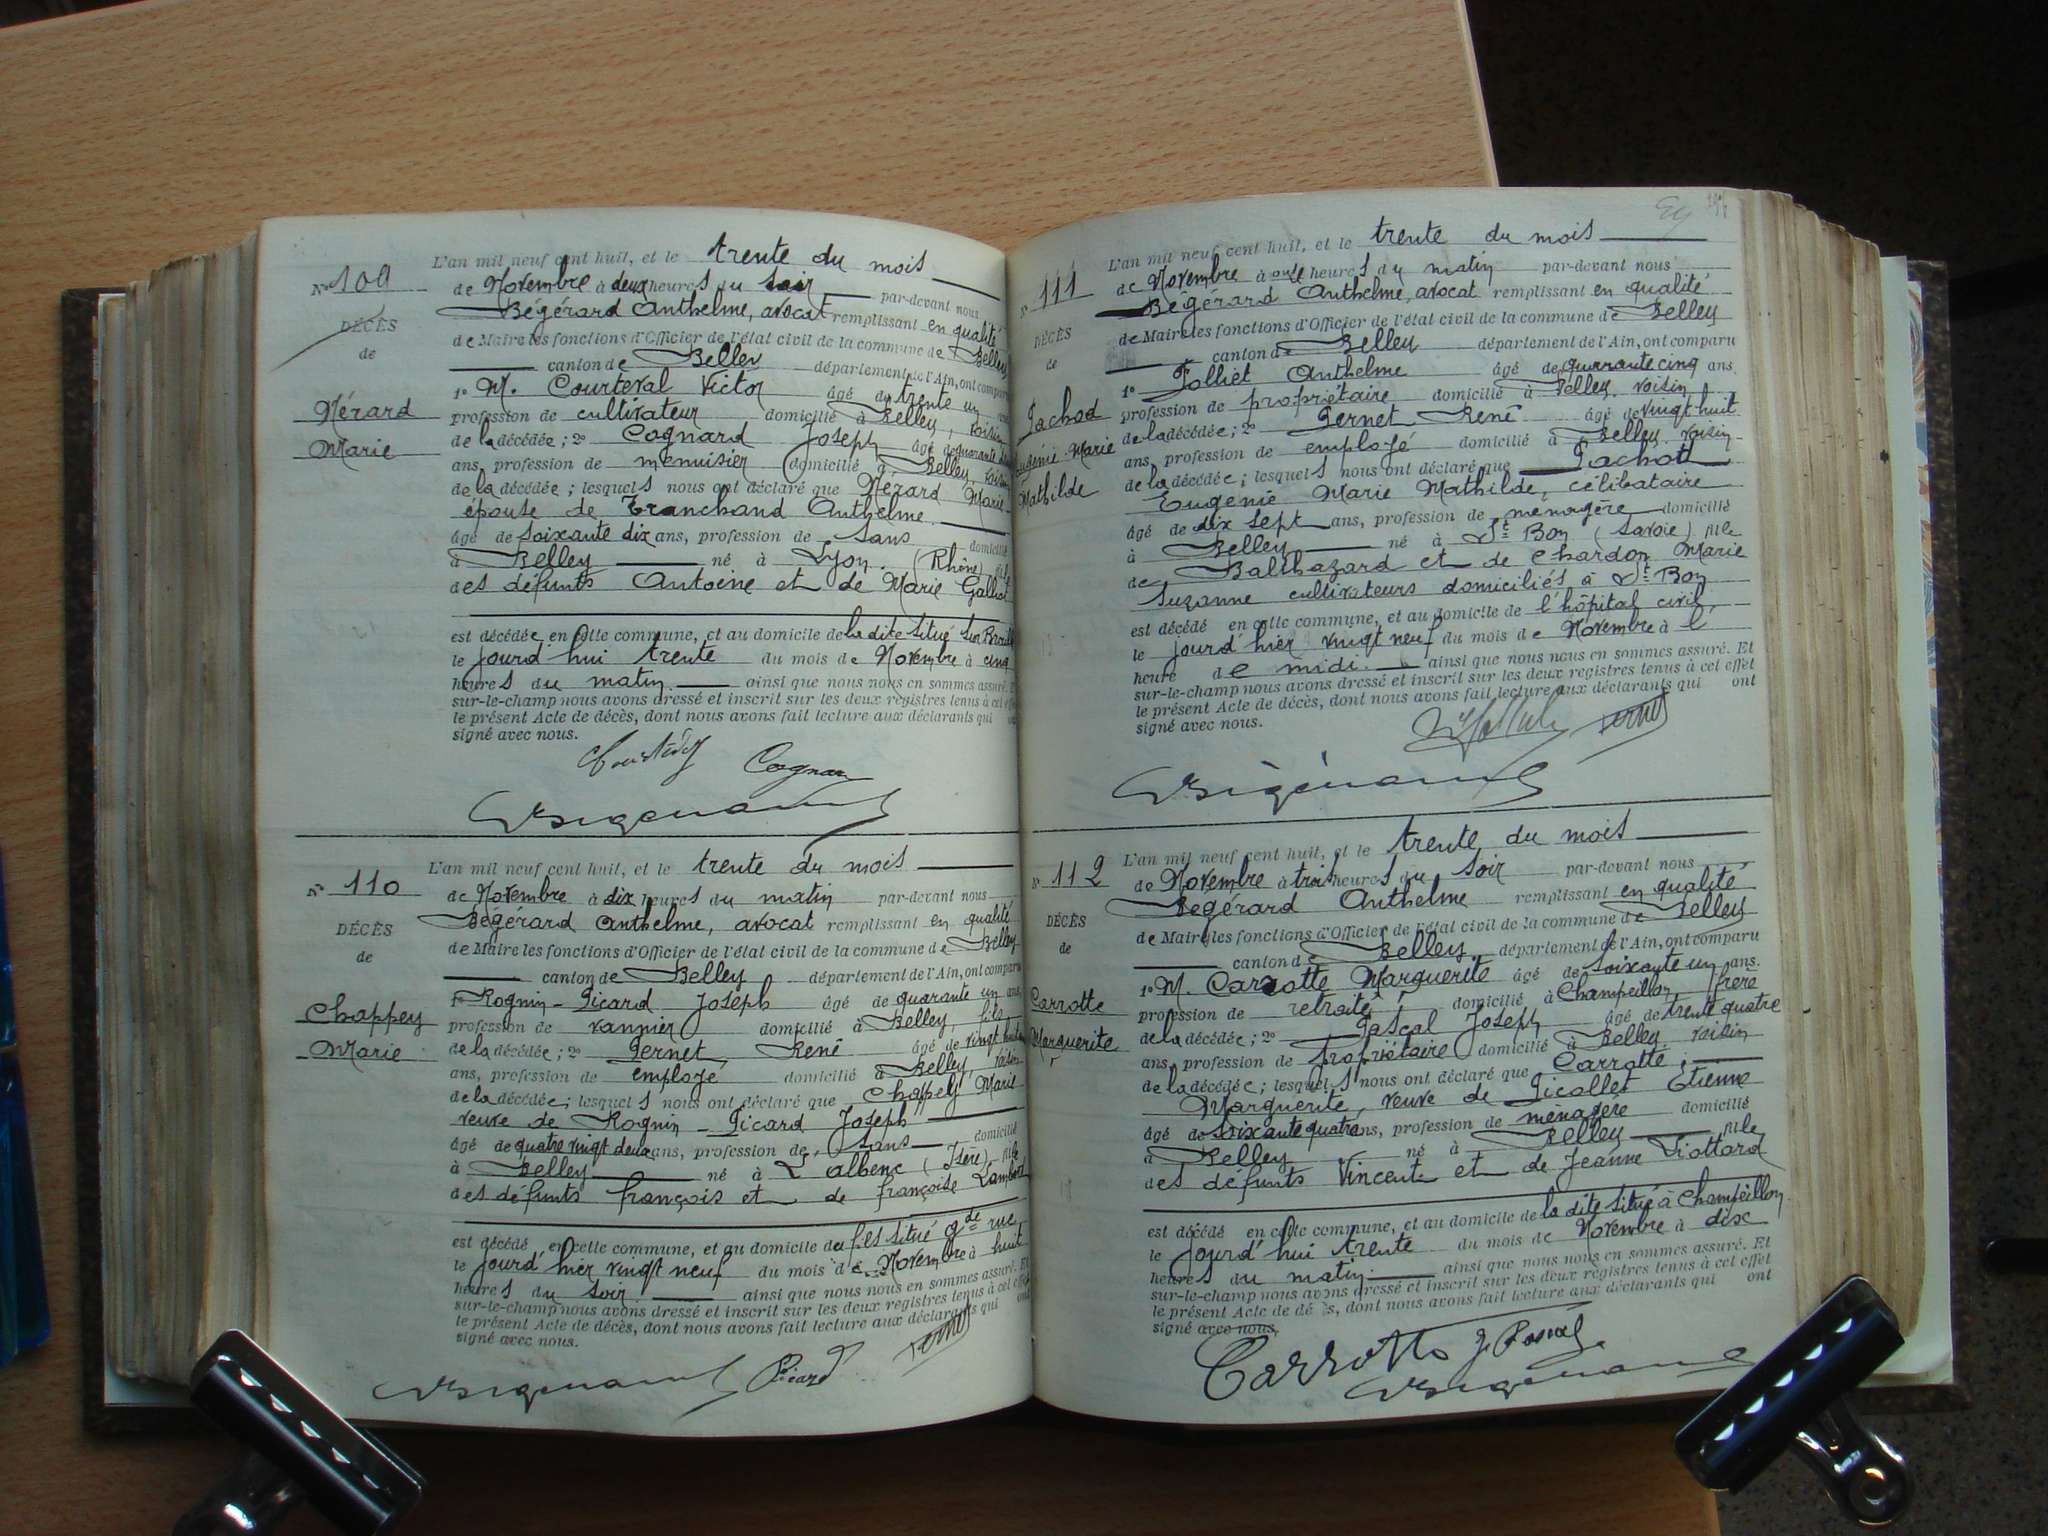 N° 109
DÉCÈS
de
Nérard
Marie
L'an mil neuf cent huit, et le trente du mois
de Novembre à deux heures du soir par-devant nous
Bégérard Anthelme, avocat remplissant en qualité
de Maire les fonctions d'Officier de l'état civil de la commune de Belley
canton de Belley département de l'Ain, ont comparu
1° M. Courteval Victor âgé de trente un ans
profession de cultivateur domicilié à Belley, voisin
de la décédée ; 2° Cognard Joseph âgé de quarante
ans, profession de menuisier domicilié à Belley, voisin
de la décédée ; lesquels nous ont déclaré que Nérard Marie
épouse de Tranchand Anthelme
âgé de soixante dix ans, profession de sans domicilié
à Belley né à Lyon (Rhône) fille
des défunts Antoine et de Marie
est décédée en cette commune, et au domicile de la dite situé
le jourd'hui trente du mois de Novembre à cinq
heures du matin ainsi que nous nous en sommes assuré. Et
sur-le-champ nous avons dressé et inscrit sur les deux registres tenus à cet effet
le présent Acte de décès, dont nous avons fait lecture aux déclarants qui ont
signé avec nous.
Cognard
N° 110
DÉCÈS
de
Chappey
Marie
L'an mil neuf cent huit, et le trente du mois
de Novembre à dix heures du matin par-devant nous
Bégérard Anthelme, avocat remplissant en qualité
de Maire les fonctions d'Officier de l'état civil de la commune de Belley
canton de Belley département de l'Ain, ont comparu
1° Rognin-Picard Joseph âgé de quarante un ans
profession de vannier domicilié à Belley, fils
de la décédée ; 2° Pernet René âgé de vingt huit
ans, profession de employé domicilié à Belley, voisin
de la décédée ; lesquels nous ont déclaré que Chappey Marie
veuve de Rognin-Picard Joseph
âgé de quatre vingt deux ans, profession de sans domicilié
à Belley né à L'albenc (Isère) fille
des défunts françois et de françoise Lambert
est décédé en cette commune, et au domicile du fils situé gde rue
le jourd'hier vingt neuf du mois de Novembre à huit
heures du soir ainsi que nous nous en sommes assuré. Et
sur-le-champ nous avons dressé et inscrit sur les deux registres tenus à cet effet
le présent Acte de décès, dont nous avons fait lecture aux déclarants qui ont
signé avec nous.
Picard
N° 111
DÉCÈS
de
Pachod
Eugénie Marie
Mathilde
L'an mil neuf cent huit, et le trente du mois
de Novembre à onze heures du matin par-devant nous
Bégérard Anthelme, avocat remplissant en qualité
de Maire les fonctions d'Officier de l'état civil de la commune de Belley
canton de Belley département de l'Ain, ont comparu
1° Folliet Anthelme âgé de quarante cinq ans
profession de propriétaire domicilié à Belley, voisin
de la décédée ; 2° Pernet René âgé de vingt huit
ans, profession de employé domicilié à Belley, voisin
de la décédée ; lesquels nous ont déclaré que Pachod
Eugénie Marie Mathilde, célibataire
âgé de dix sept ans, profession de ménagère domicilié
à Belley né à St Bon (Savoie) fille
de Balthazard et de Chardon Marie
Suzanne cultivateurs domiciliés à St Bon
est décédé en cette commune, et au domicile de l'hôpital civil
le jourd'hier vingt neuf du mois de Novembre à l'
heure de midi. ainsi que nous nous en sommes assuré. Et
sur-le-champ nous avons dressé et inscrit sur les deux registres tenus à cet effet
le présent Acte de décès, dont nous avons fait lecture aux déclarants qui ont
signé avec nous.
N° 112
DÉCÈS
de
Carrotte
Marguerite
L'an mil neuf cent huit, et le trente du mois
de Novembre à trois heures du soir par-devant nous
Bégérard Anthelme remplissant en qualité
de Maire les fonctions d'Officier de l'état civil de la commune de Belley
canton de Belley département de l'Ain, ont comparu
1° M. Carrotte Marguerite âgé de soixante un ans.
profession de retraité domicilié à Champeillon frère
de la décédée ; 2° Pascal Joseph âgé de trente quatre
ans, profession de propriétaire domicilié à Belley voisin
de la décédée ; lesquels nous ont déclaré que Carrotte
Marguerite, veuve de Picollet Etienne
âgé de soixante quatre ans, profession de ménagère domicilié
à Belley né à Belley fille
des défunts Vincent et de Jeanne Diottard
est décédé en cette commune, et au domicile de la dite situé à Champeillon
le jourd'hui trente du mois de Novembre à dix
heures du matin ainsi que nous nous en sommes assuré. Et
sur-le-champ nous avons dressé et inscrit sur les deux registres tenus à cet effet
le présent Acte de décès, dont nous avons fait lecture aux déclarants qui ont
signé avec nous.
Carrotte J. Pascal